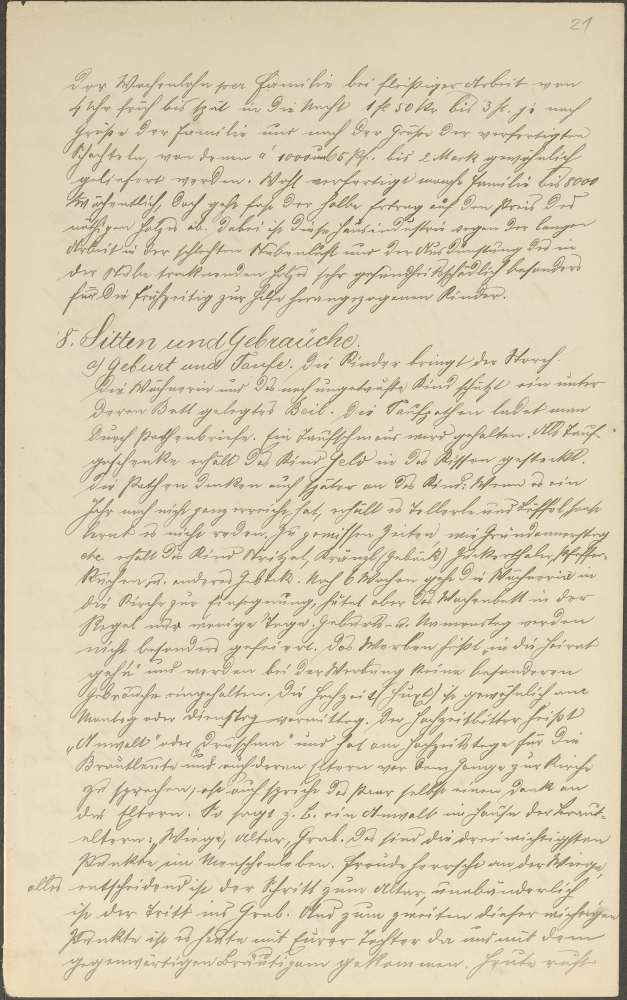 21
Der Wochenlohn per Familie bei fleißiger Arbeit von
4 Uhr früh bis spät in die Nacht 1 fl 50 Kr. bis 3 fl. je nach
Größe der Familie und nach der Größe der verfertigten
Schachteln, von denen à 1000 um 65 Pf. bis 2 Mark gewöhnlich
geliefert werden. Wohl verfertigt manche Familie bis 8000
wöchentlich, doch geht fast der halbe Ertrag auf den Preis des
nöthigen Holzes ab. Dabei ist diese Hausindustrie wegen der langen
Arbeit in der schlechten Stubenluft und der Ausdünstung des in
der Stube trocknenden Holzes sehr gesundheitsschädlich besonders
für die frühzeitig zur Hilfe herangezogenen Kinder.
8. Sitten und Gebräuche.
a) Geburt und Taufe. Die Kinder bringt der Storch.
Die Wöchnerin und das noch ungetaufte Kind schützt ein unter
deren Bett gelegtes Beil. Die Taufpathen ladet man
durch Pathenbriefe. Ein Taufschmaus wird gehalten. Als Tauf-
geschenke erhält das Kind Geld in das Kissen gesteckt.
Die Pathen denken auch später an das Kind: Wenn es ein
Jahr noch nicht ganz erreicht hat, erhält es Tellerle und Löffel, sonst
lernt es nicht reden. Zu gewissen Zeiten, wie Gründonnerstag
etc. erhält das Kind Striezel, Kränzl (Gebäck), Zuckerthaler, Pfeffer-
kuchen u. anderes Gebäck. Nach 6 Wochen geht die Wöchnerin in
die Kirche zur Einsegnung, hütet aber das Wochenbett in der
Regel nur wenige Tage. Geburts- u. Namenstag werden
nicht besonders gefeiert. Das Werben heißt „in die Heirat
gehn" und werden bei der Werbung keine besonderen
Gebräuche eingehalten. Die Hochzeit (Huxt) ist gewöhnlich am
Montag oder Dienstag vormittag. Der Hochzeitbitter heißt
„Anwalt" oder „Druschma" und hat am Hochzeitstage für die
Brautleute und auch deren Eltern vor dem Gange zur Kirche
zu sprechen; oft auch spricht das Paar selbst einen Dank an
die Eltern. So sagt z. B. ein Anwalt im Hause der Braut-
eltern: „Wiege, Altar, Grab. Das sind die drei wichtigsten
Punkte im Menschenleben. Freude herrscht an der Wiege,
alles entscheidend ist der Schritt zum Altar, unabänderlich
ist der Tritt ins Grab. Am zweiten dieser wichtigen
Punkte ist es heute mit Eurer Tochter da und mit dem
gegenwärtigen Bräutigam gekommen. Heute